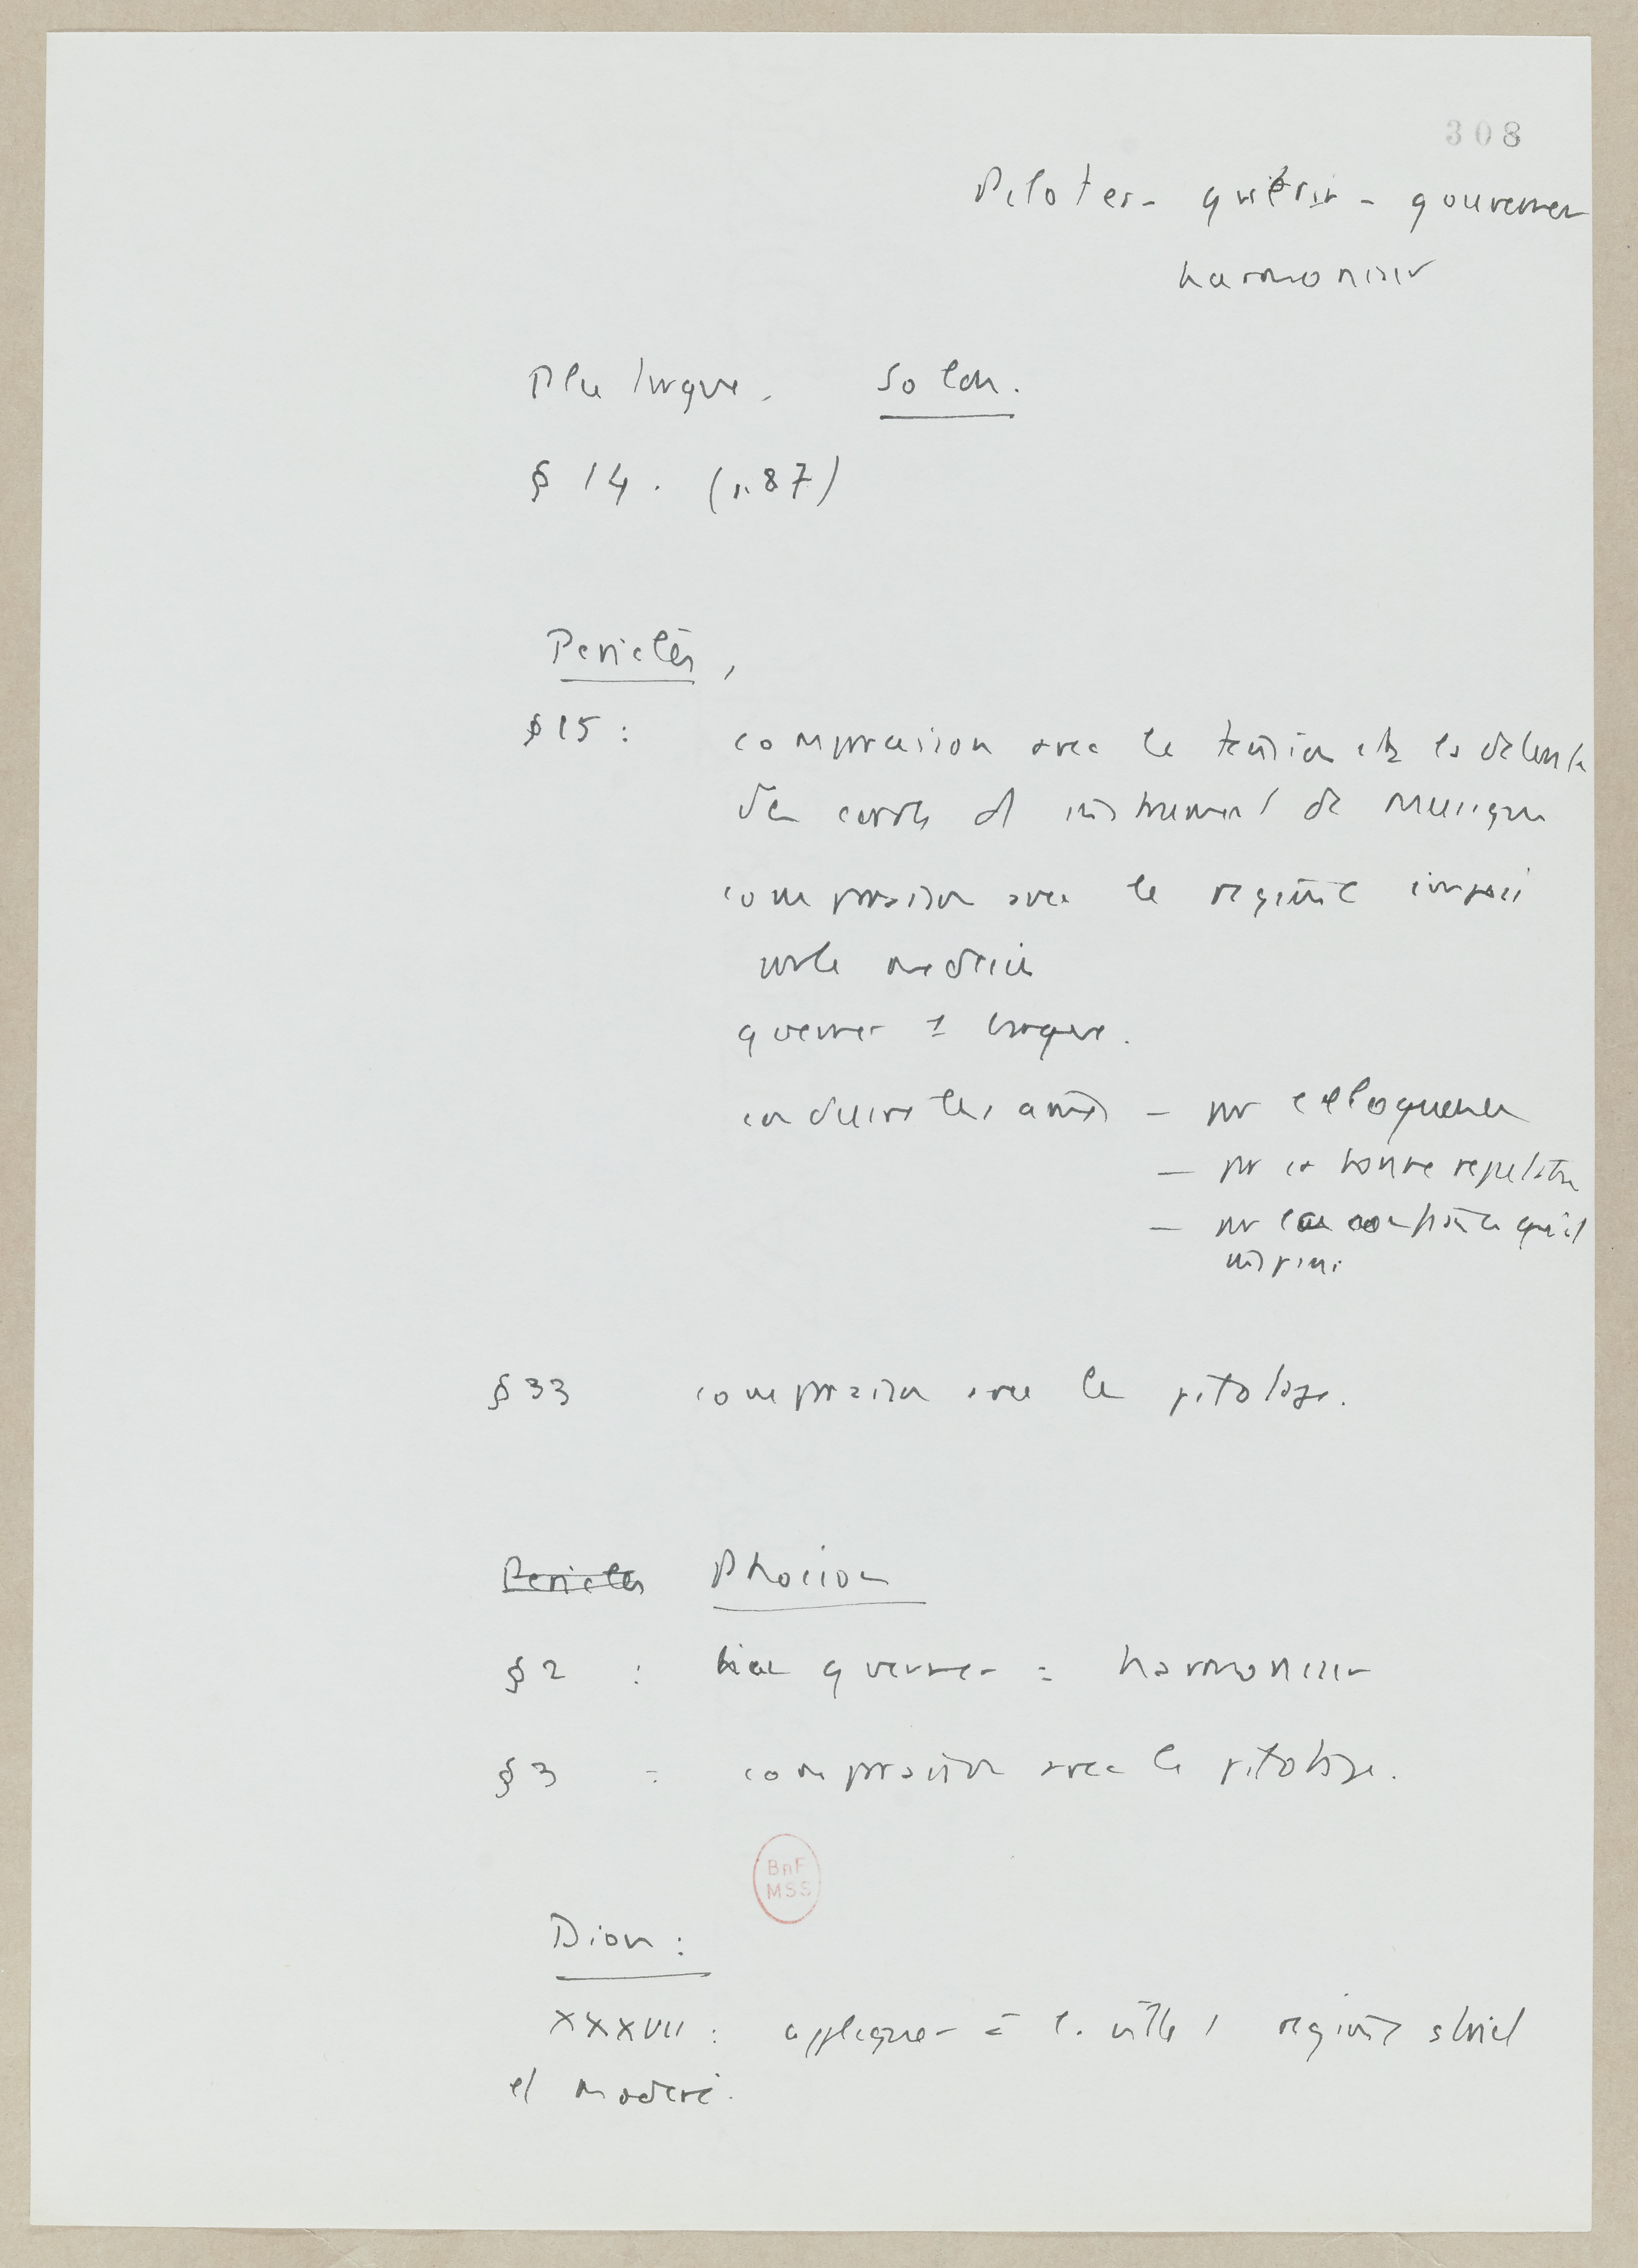 308
Piloter - guérir - gouverner
harmoniser
Plutarque. Solon.
§ 14. (p. 87)
Periclès,
§ 15 : comparaison avec la tension et la détente
des cordes d'instrument de musique
comparaison avec le régime imposé
par le médecin
gouverner =
conduire les âmes - par l'éloquence
- par la bonne réputation
- par la confiance qu'il
inspire
§ 33 comparaison avec le pilotage.
Periclès Phocion
§ 2 : gouverner = harmoniser
§ 3 = comparaison avec le pilotage.
BnF
MSS
Dion :
XXXVII : appliquer à la ville 1 régime strict
et modéré.